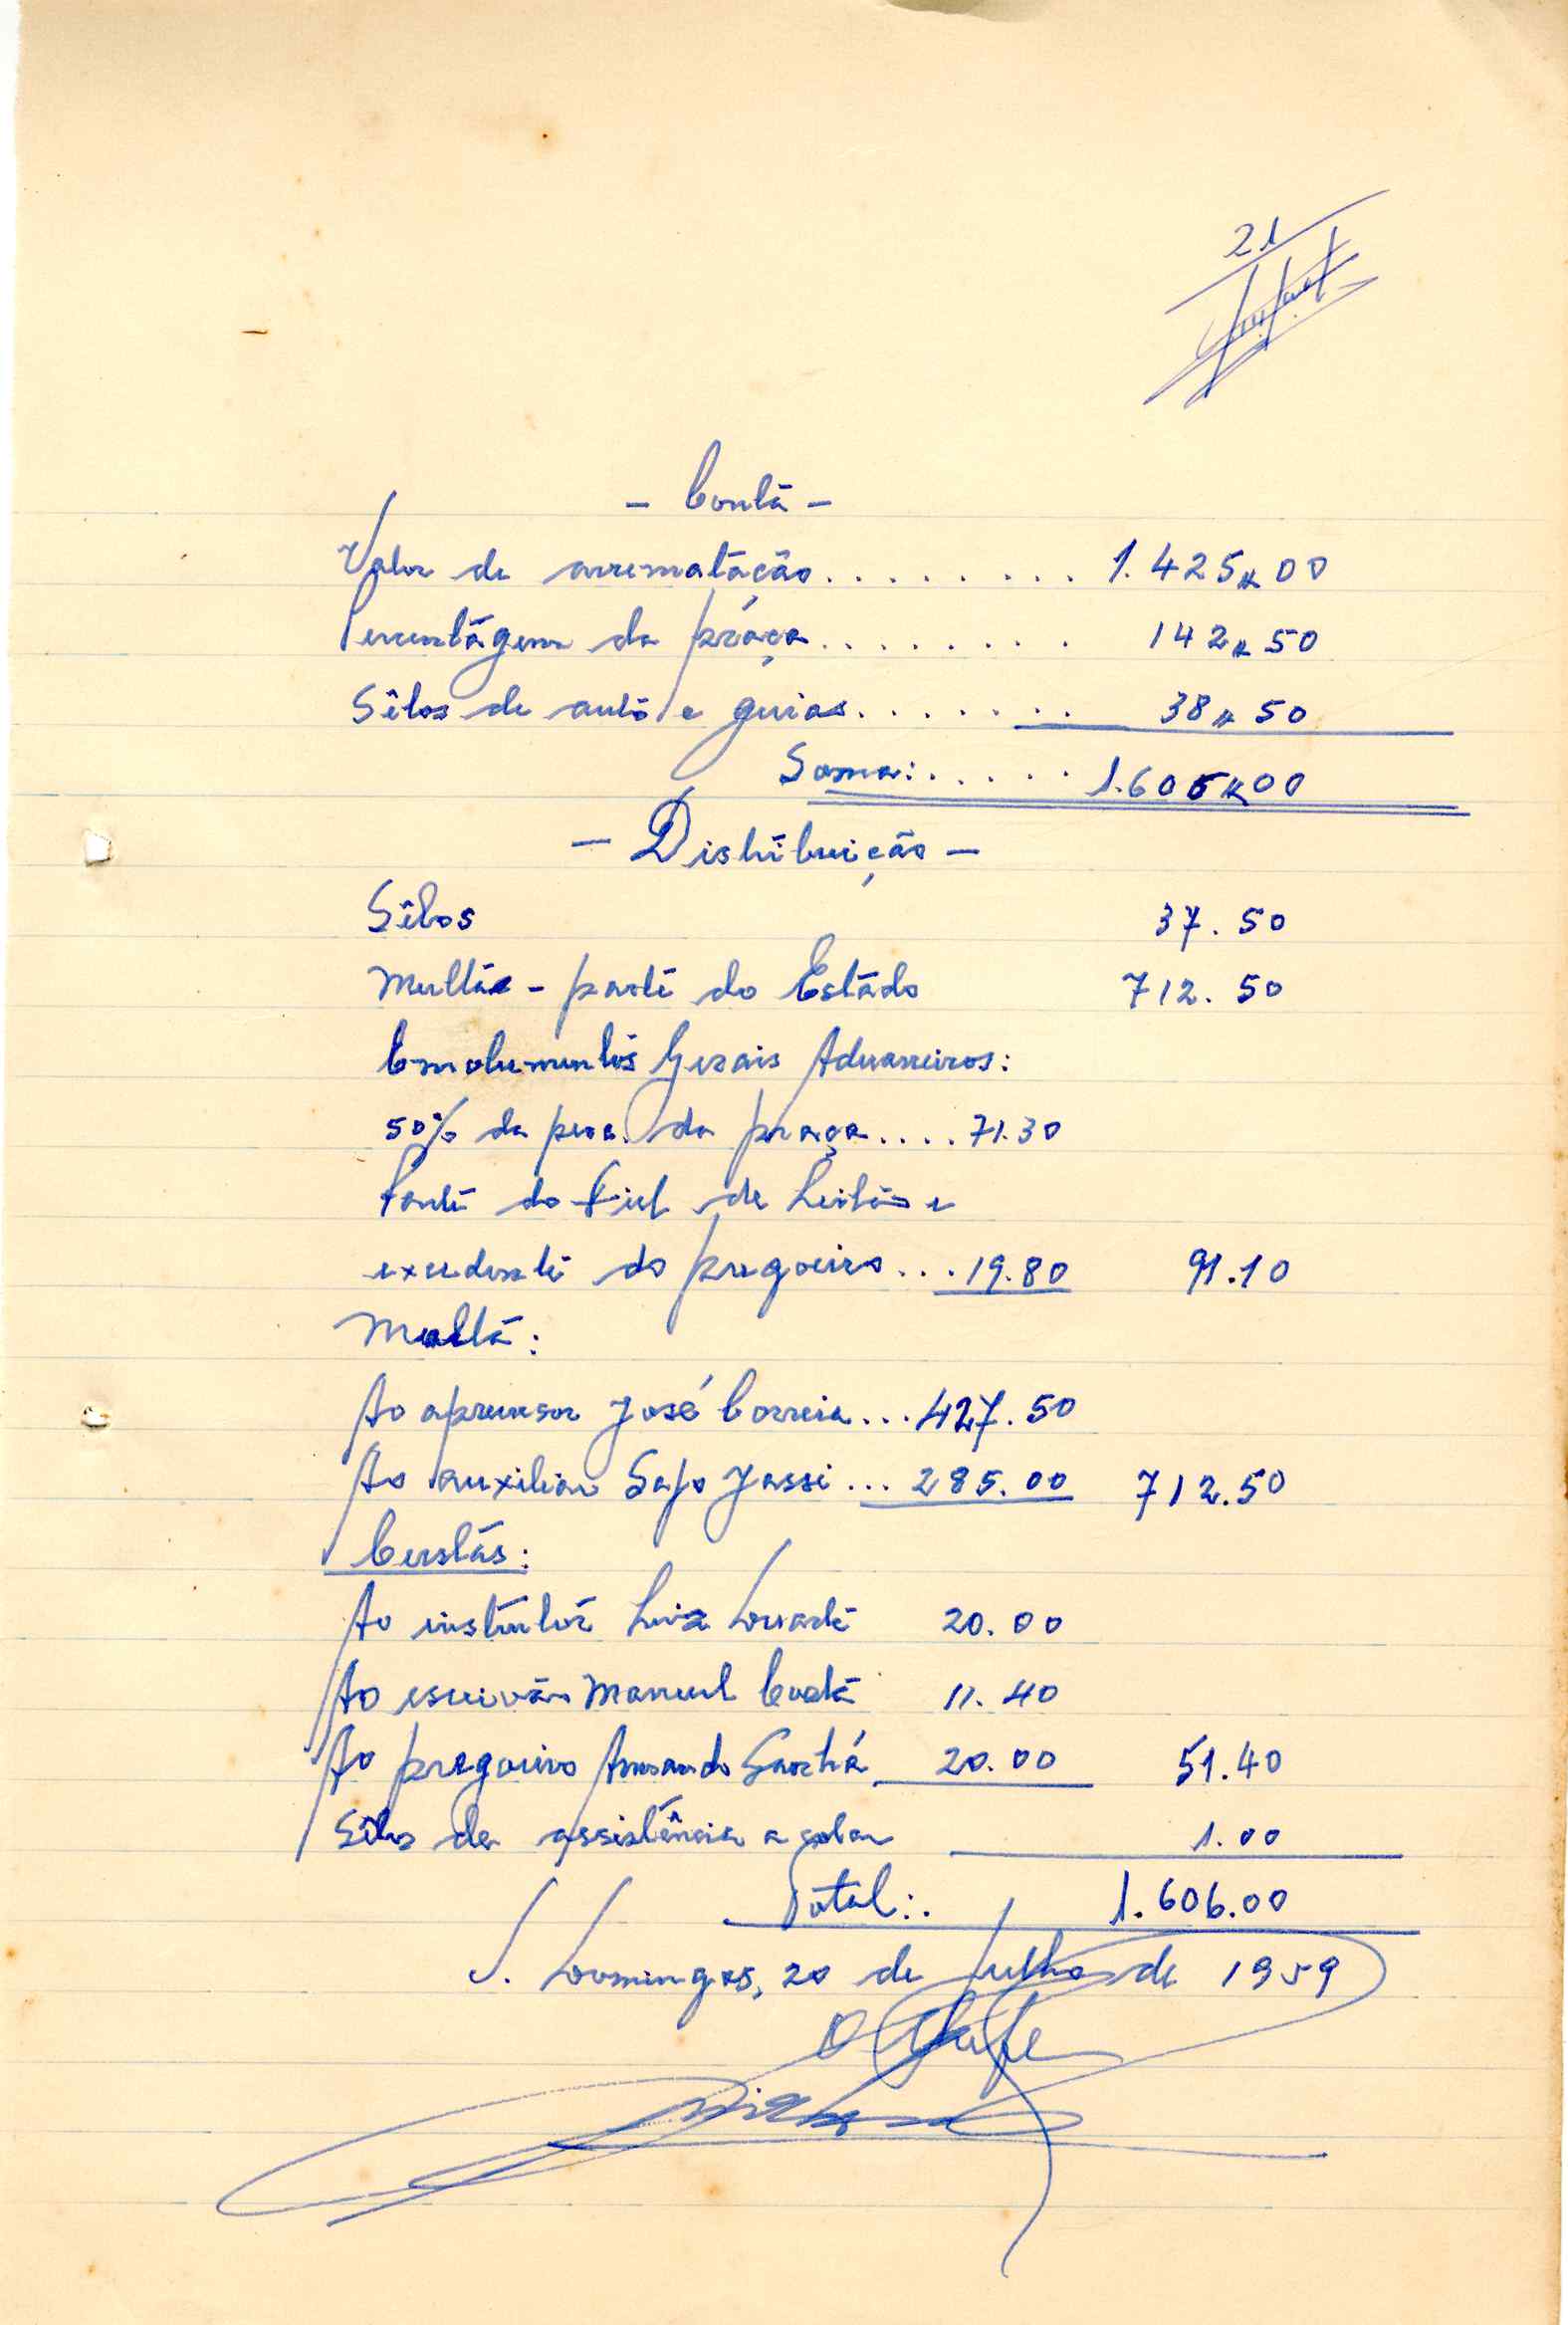 21
- Conta -
Valor de arrematação......... 1.425$00
Percentágem da práça........ 142$50
Sêlos de auto e guias....... 38$50
Soma:..... 1.606$00
- Distribuição -
Sêlos 37.50
Multas - parte do Estado 712.50
Emolumentos Gerais Aduaneiros:
50% da perc. da praça.... 71.30
Parte do Fiel de Leilão e
excedente do pregoeiro... 19.80 91.10
Multa:
Ao apreensor José Correia... 427.50
Ao auxiliar Safo Jassi... 285.00 712.50
Custas:
Ao instrutor Luiz Duarte 20.00
Ao escrivão Manuel Costa 11.40
Ao pregoeiro Armando 20.00 51.40
Sêlos de assistência a colar 1.00
Total:. 1.606.00
S. Domingos, 20 de Julho de 1959
O Chefe